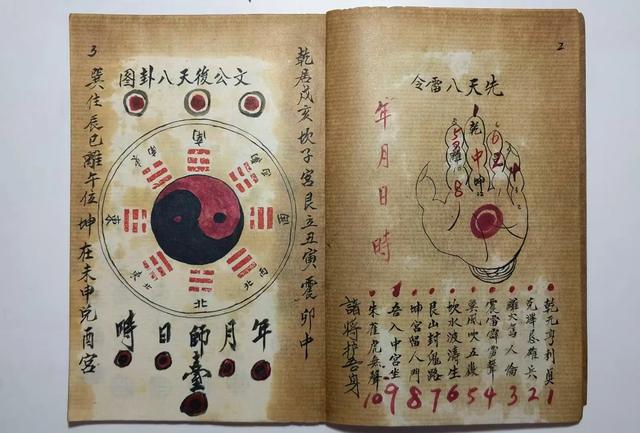 2
先天八雷令
年月日時
乾
中
坤
離
8
乾元亨利貞1
兌澤雄兵2
離火人倫3
震雷霹靂聲4
巽風吹五嶽5
坎水波濤生6
艮山封鬼路7
坤宮留人門8
吾入中宮坐9
朱雀虎無聲10
諸將護吾身
3
乾居戌亥坎子宮艮立丑寅震卯中
文公後天八卦图
南
西南
西
西北
北
東北
東
東南
年月師臺日時
巽住辰巳離午位坤在未申兌酉宮